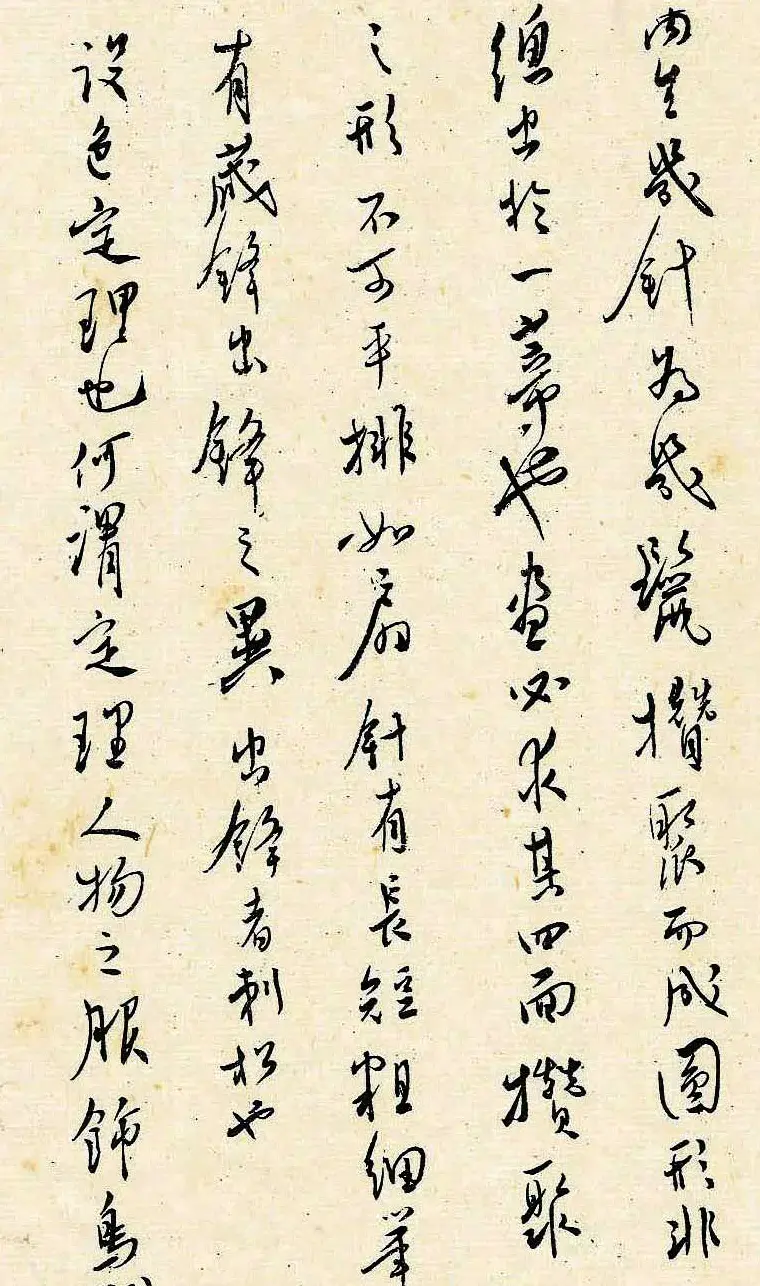 内生幾針為幾鬣攢聚而成圓形非
總出於一蒂也畫必求其四面攢聚
之形不可平排如扇針有長短粗細筆
有藏鋒出鋒之異出鋒者刺松也
設色定理也何謂定理人物之服飾鳥